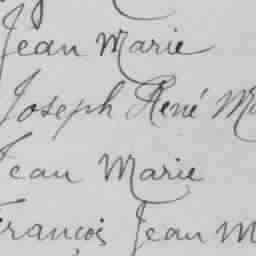 Jean Marie
Joseph René
Jean Marie
François Jean